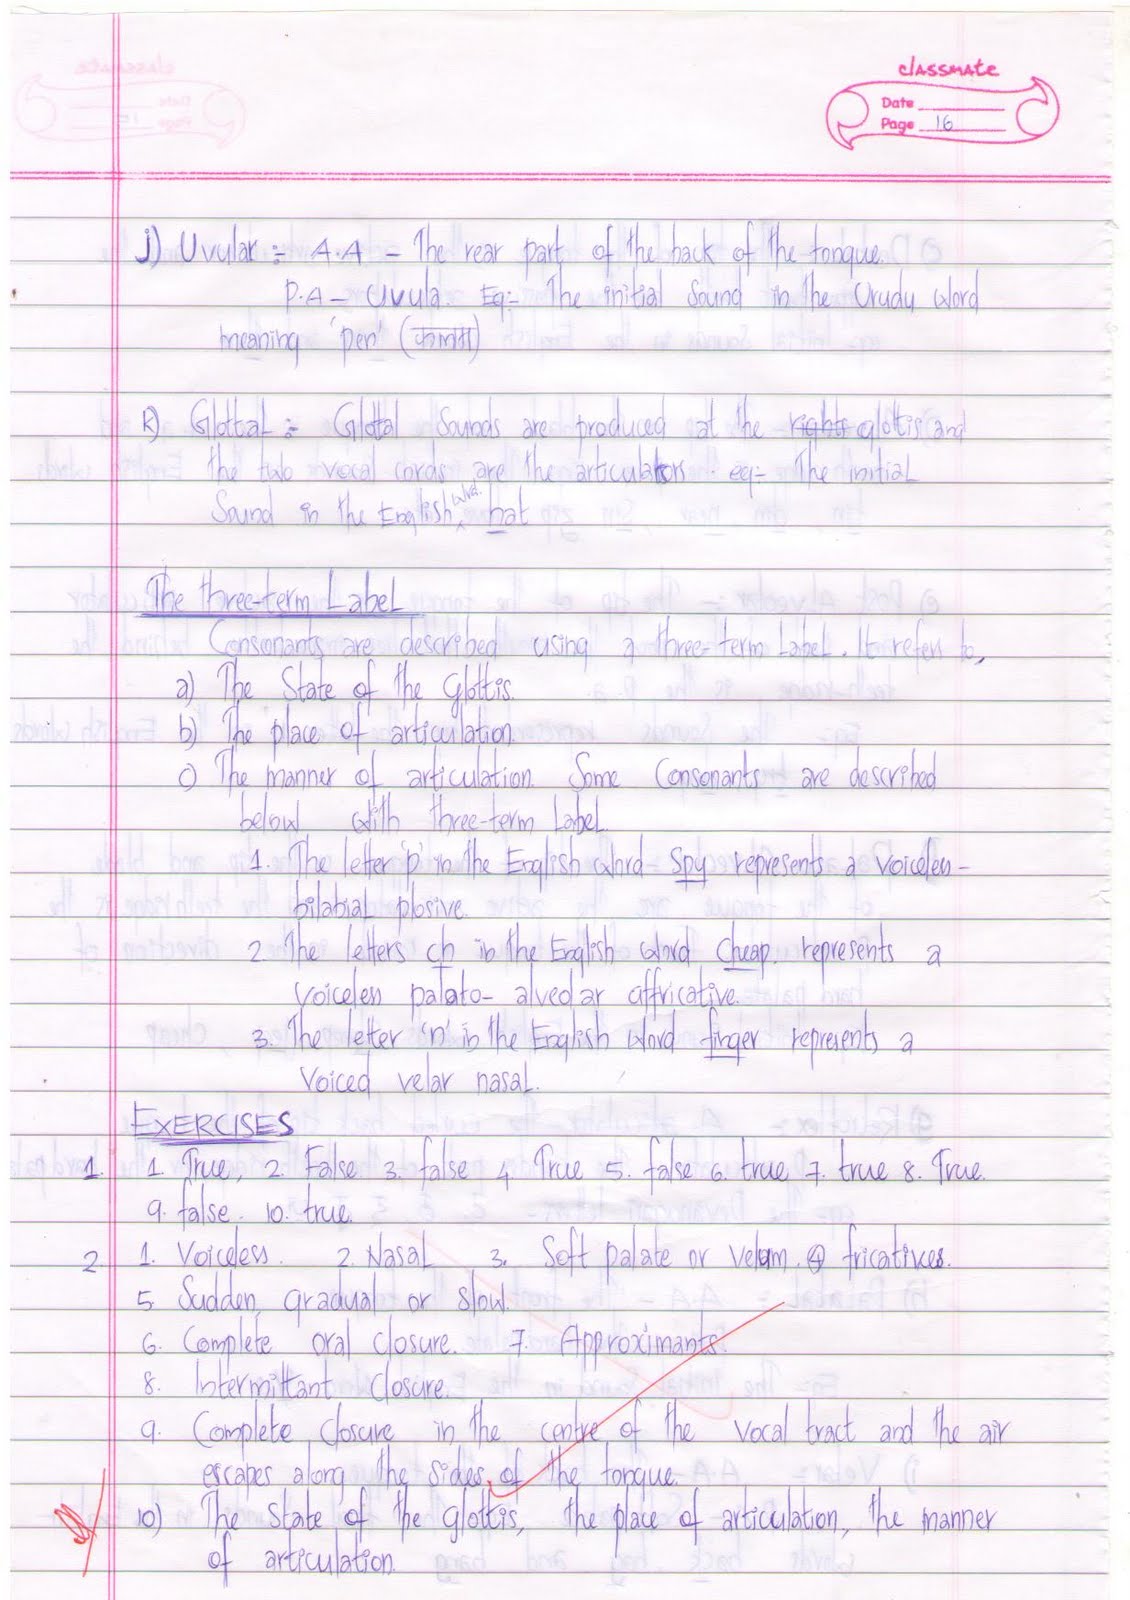 classmate
Date
Page 16
j) Uvular :- A.A - The rear part of the back of the tongue.
P.A - Uvula. Eg:- The initial Sound in the Urudu word
meaning 'pen' ()
k) Glottal :- Glottal Sounds are produced at the rights glottis and
the two vocal cords are the articulators. eg:- The initial
Sound in the English word hat
The three-term Label
Consonants are described using a three-term Label. It refers to,
a) The State of the Glottis.
b) The place of articulation.
c) The manner of articulation. Some Consonants are described
below with three-term Label.
1. The letter 'p' in the English word Spy represents a voiceless-
bilabial plosive.
2. The letters ch in the English word Cheap represents a
voiceless palato-alveolar affricative.
3. The letter 'n' in the English word finger represents a
voiced velar nasal.
EXERCISES
1. 1. True, 2. False. 3. false 4. True 5. false 6. true 7. true 8. True.
9. false. 10. true.
2. 1. Voiceless. 2. Nasal 3. Soft palate or Velum. 4 fricatives.
5. Sudden, gradual or slow.
6. Complete oral closure. 7. Approximants.
8. Intermittant closure.
9. Complete closure in the centre of the vocal tract and the air
escapes along the sides of the tongue.
10) The State of the glottis, the place of articulation, the manner
of articulation.